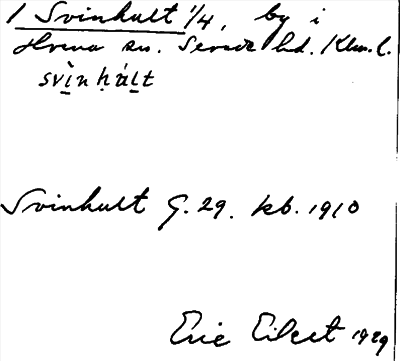 1 Svinhult 1/4, by i
Hvena sn. Sevede hd. Klm. l.
svìnḥált
Svinhult G. 29. kb. 1910
Eric Elleet 1929